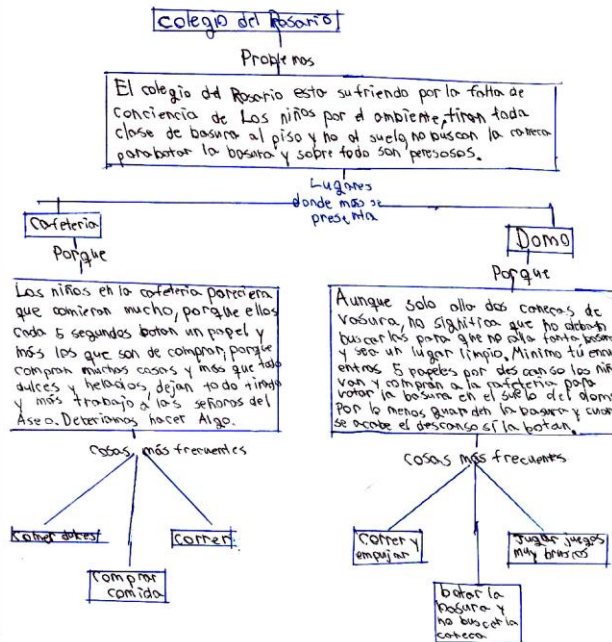 Colegio del Rosario
Problemas
El colegio del Rosario esta sufriendo por la falta de
conciencia de los niños por el ambiente, tiran toda
clase de basura al piso y no al suelo, no buscan la caneca
para botar la basura y sobre todo son peresosos.
Lugares
donde más se
presenta
Cafeteria
Porque
Los niños en la cafeteria pareciera
que comieran mucho, porque ellos
cada 5 segundos botan un papel y
más los que son de comprar, porque
compran muchas cosas y más que todo
dulces y helados, dejan todo tirado
y más trabajo a las señoras del
Aseo. Deberiamos hacer Algo.
cosas más frecuentes
comer dulces
comprar
comida
correr
Domo
Porque
Aunque solo alla dos canecas de
vasura, no significa que no deban
buscarlas para que no alla tanta basura
y sea un lugar limpio. Minimo tu encu
entras 5 papeles por descanso los niñ
van y compran a la cafeteria para
votar la basura en el suelo del domo
Por lo menos guarden la basura y cuan
se acabe el descanso si la botan.
cosas más frecuentes
correr y
empujar
botar la
basura y
no buscar la
caneca
Jugar juegos
muy bruscos